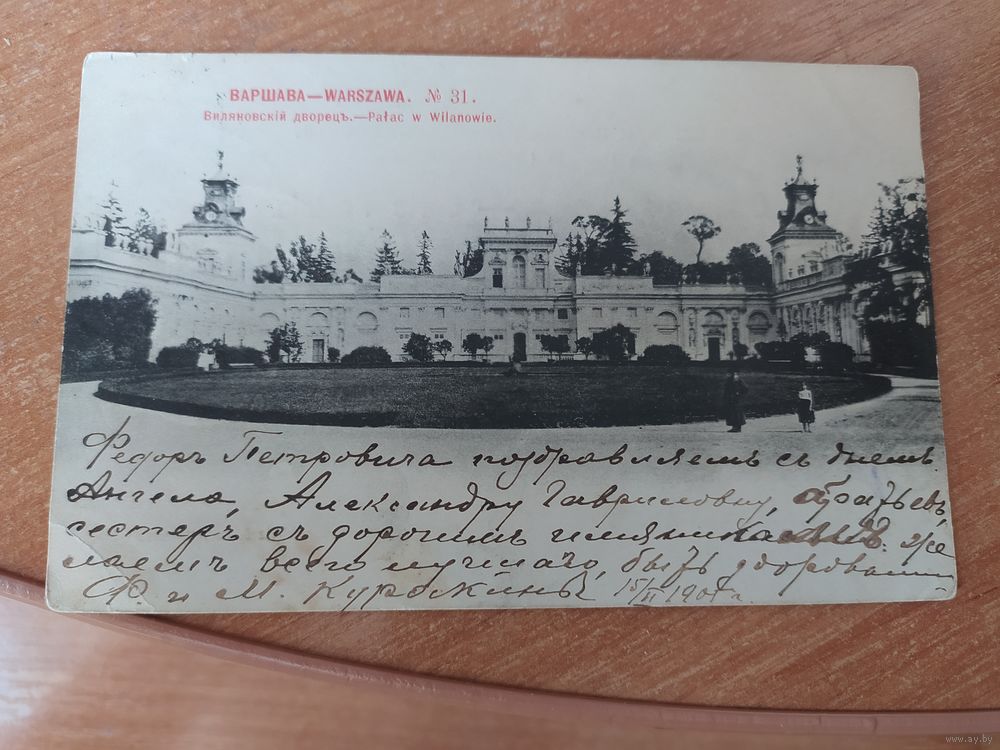 ВАРШАВА—WARSZAWA. № 31.
Виляновскій дворецъ.—Pałac w Wilanowie.
Федоръ Петровича поздравляемъ съ днемъ
Ангела, Александру Гавриловну, братьевъ,
сестеръ съ дорогимъ имянинникомъ. Же
лаемъ всего лучшаго, быть здоровыми
Ф. и М. Курожины 15/II 190
www.ay.by